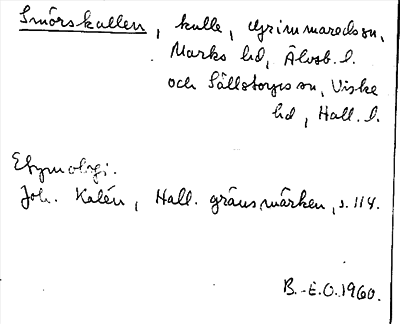 Smörskullen, kulle, Grimmareds sn,
Marks hd, Älvsb. l.
och Sällstorps sn, Viske
hd, Hall. l.
Etymologi.
Joh. Kalén, Hall. gränsmärken, s. 114.
B.-E.O. 1960.